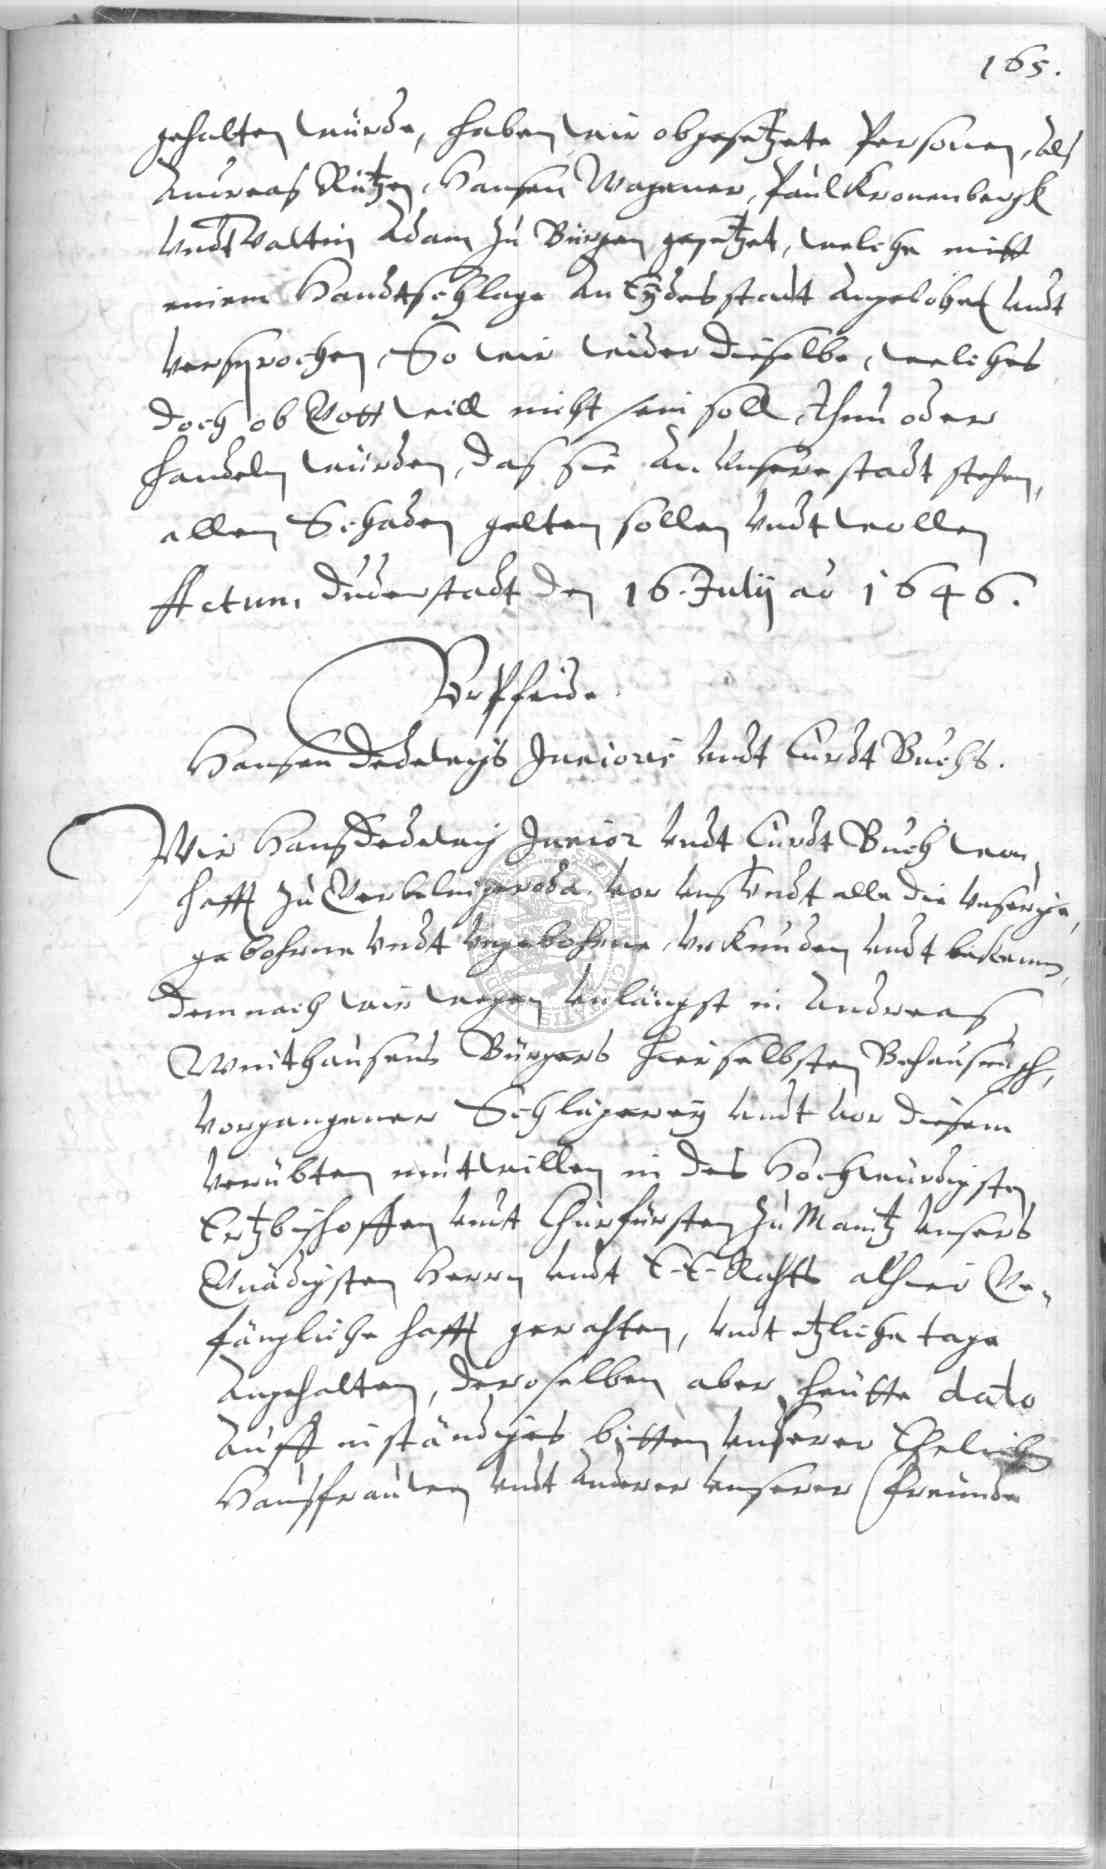 165.
gehalten würde, haben wir obgesetzete Personen, als
Andreas Kützen, Hansen Wagener, Paul Kronenbergk
Undt Valtin Adam zu Bürgen gesetzet, welche mitt
einem Handtschlage an Eÿdes stadt angelobet undt
versprochen, So wir wider dieselbe, welches
doch ob Gott will nicht sein soll, thun oder
handeln würden, das sie an unsere stadt stehen,
allen Schaden gelten sollen undt wollen
Actum Duderstadt den 16. Julij ao 1646.
Urpheide
Hansen Dedeleÿs Junioris undt Curdt Buchs.
Wir Hans Dedeleÿ Junior undt Curdt Buch won,
hafft zu Gerbelingeroda vor uns undt alle die unserige,
gebohrne undt ungebohrne, Urkunden undt bekennen,
demnach wir wegen unlängst in Andreas
Bürgers hierselbsten Behausung,
vorgangener Schlägereÿ undt vor diesem
verübten mutwillen in des Hochwürdigsten
Ertzbischoffen undt Churfürsten zu Maintz unsers
Gnädigsten Herrn undt E. E. Rahts alhier Ge,
fängliche hafft gerahten, undt etzliche tage
angehalten, deroselben aber heutte dato
auff inständiges bitten unserer Ehelichen
Hausfrauwen undt anderer unserer Freunde